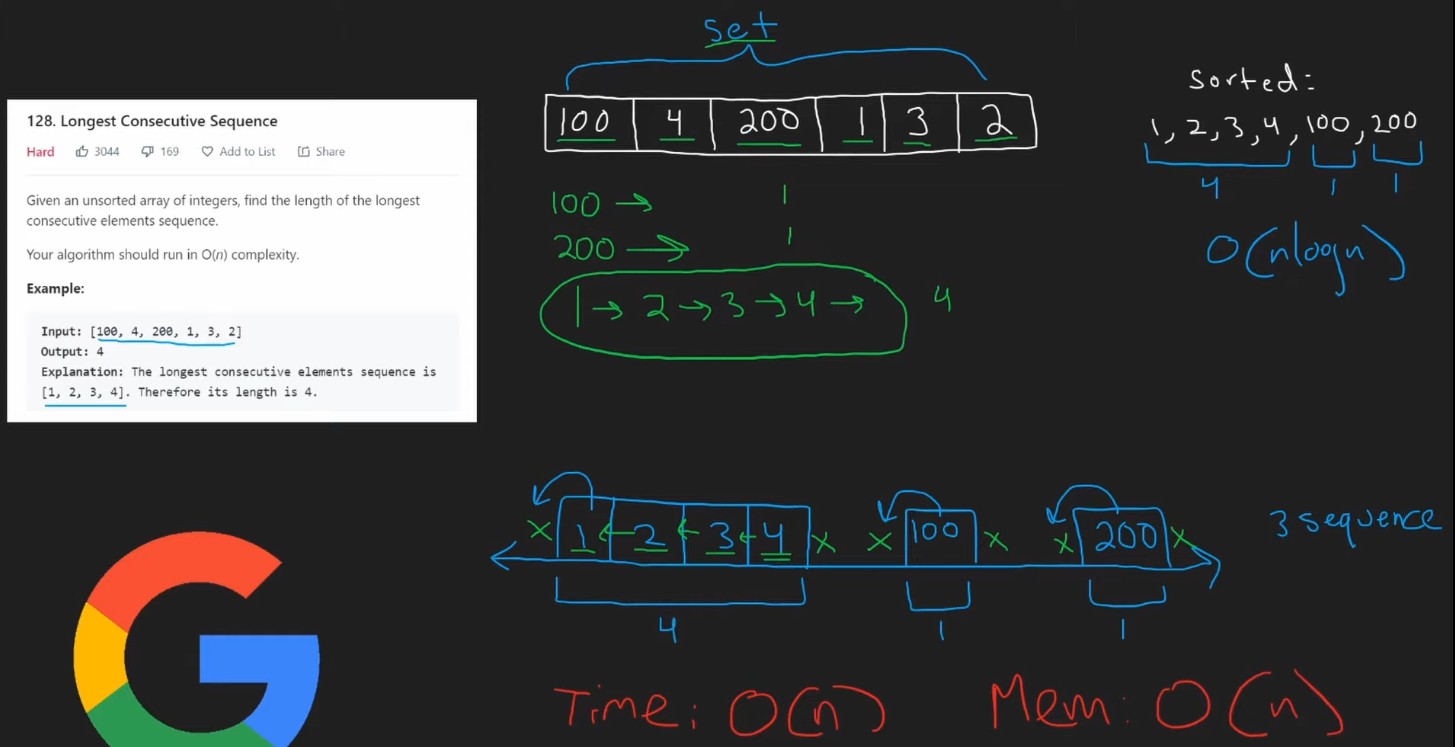 128. Longest Consecutive Sequence
Hard 3044 169 Add to List Share
Given an unsorted array of integers, find the length of the longest
consecutive elements sequence.
Your algorithm should run in O(n) complexity.
Example:
Input: [100, 4, 200, 1, 3, 2]
Output: 4
Explanation: The longest consecutive elements sequence is
[1, 2, 3, 4]. Therefore its length is 4.
set
100 4 200 1 3 2
100 → 1
200 → 1
1 → 2 → 3 → 4 → 4
Sorted:
1, 2, 3, 4, 100, 200
4 1 1
O(nlogn)
x 1 ← 2 ← 3 ← 4 x x 100 x x 200 x
4 1 1
3 sequence
Time: O(n) Mem: O(n)